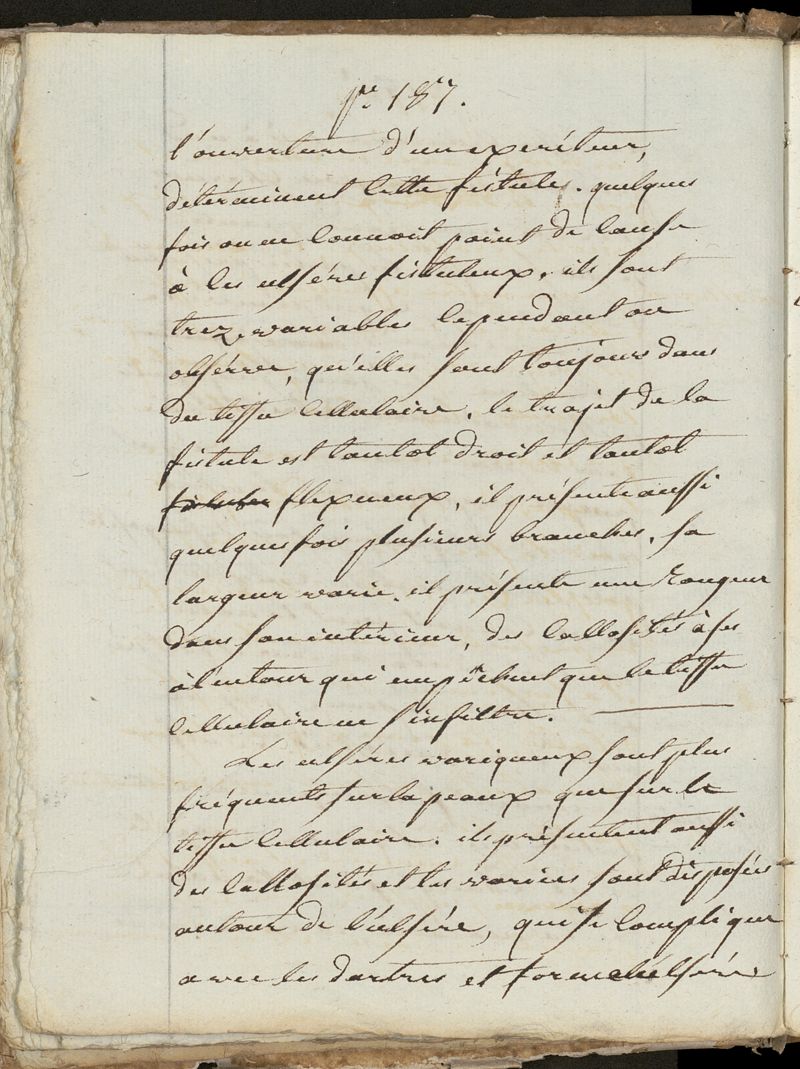 pe. 187.
l'ouverture d'un
déterminent cette fistule. quelques
fois on ne connoit point de cause
à ces ulséres fistuleux, ils sont
trez variables cependant on
obsérve, qu'elles sont toujours dans
du tissu cellulaire, le trajet de la
fistule est tantot droit et tantot
flexueux, il présente aussi
quelques fois plusieurs branches, sa
largeur varie. il présente une rougeur
dans son intérieur, des callosités à ses
à lentour qui empêchent que le tissu
cellulaire ne s'infiltre.
Les ulséres variqueux sont plus
fréquents sur la peaux que sur le
tissu cellulaire. ils présentent aussi
des callosités et les varices sont disposées
autour de l'ulsére, qui se complique
avec les dartres et forme l'ulsére